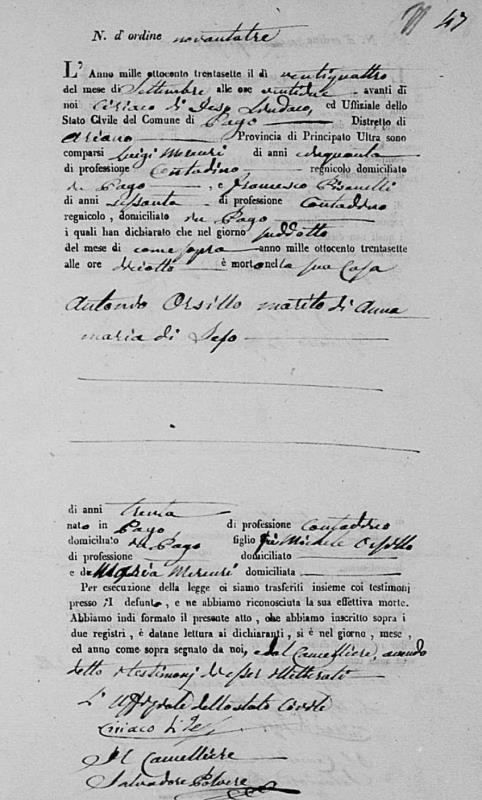 47
N. d'ordine novantatre
L'Anno mille ottocento trentasette il dì ventiquattro
del mese di Settembre alle ore ventidue avanti di
noi Ciriaco di Jeso Sindaco, ed Uffiziale dello
Stato Civile del Comune di Pago Distretto di
Ariano Provincia di Principato Ultra sono
comparsi Luigi Mercuri di anni cinquanta
di professione Contadino regnicolo domiciliato
in Pago, e Francesco
di anni sessanta di professione Contadino
regnicolo, domiciliato in Pago
i quali han dichiarato che nel giorno suddetto
del mese di come sopra anno mille ottocento trentasette
alle ore dieciotto è morto nella sua Casa
Antonio Orsillo marito di Anna
maria di Jeso
di anni trenta
nato in Pago di professione Contadino
domiciliato in Pago figlio fù Michele Orsillo
di professione domiciliato
e di Maria Mercuri domiciliata
Per esecuzione della legge ci siamo trasferiti insieme coi testimonj
presso il defunto, e ne abbiamo riconosciuta la sua effettiva morte.
Abbiamo indi formato il presente atto, che abbiamo inscritto sopra i
due registri, è datane lettura ai dichiaranti, si è nel giorno, mese,
ed anno come sopra segnato da noi, e dal Cancelliere, avendo
detto i testimonj di esser illetterati
L'Uffiziale dello stato Civile
Ciriaco di Jeso
Il Cancelliere
Salvadore Polvere